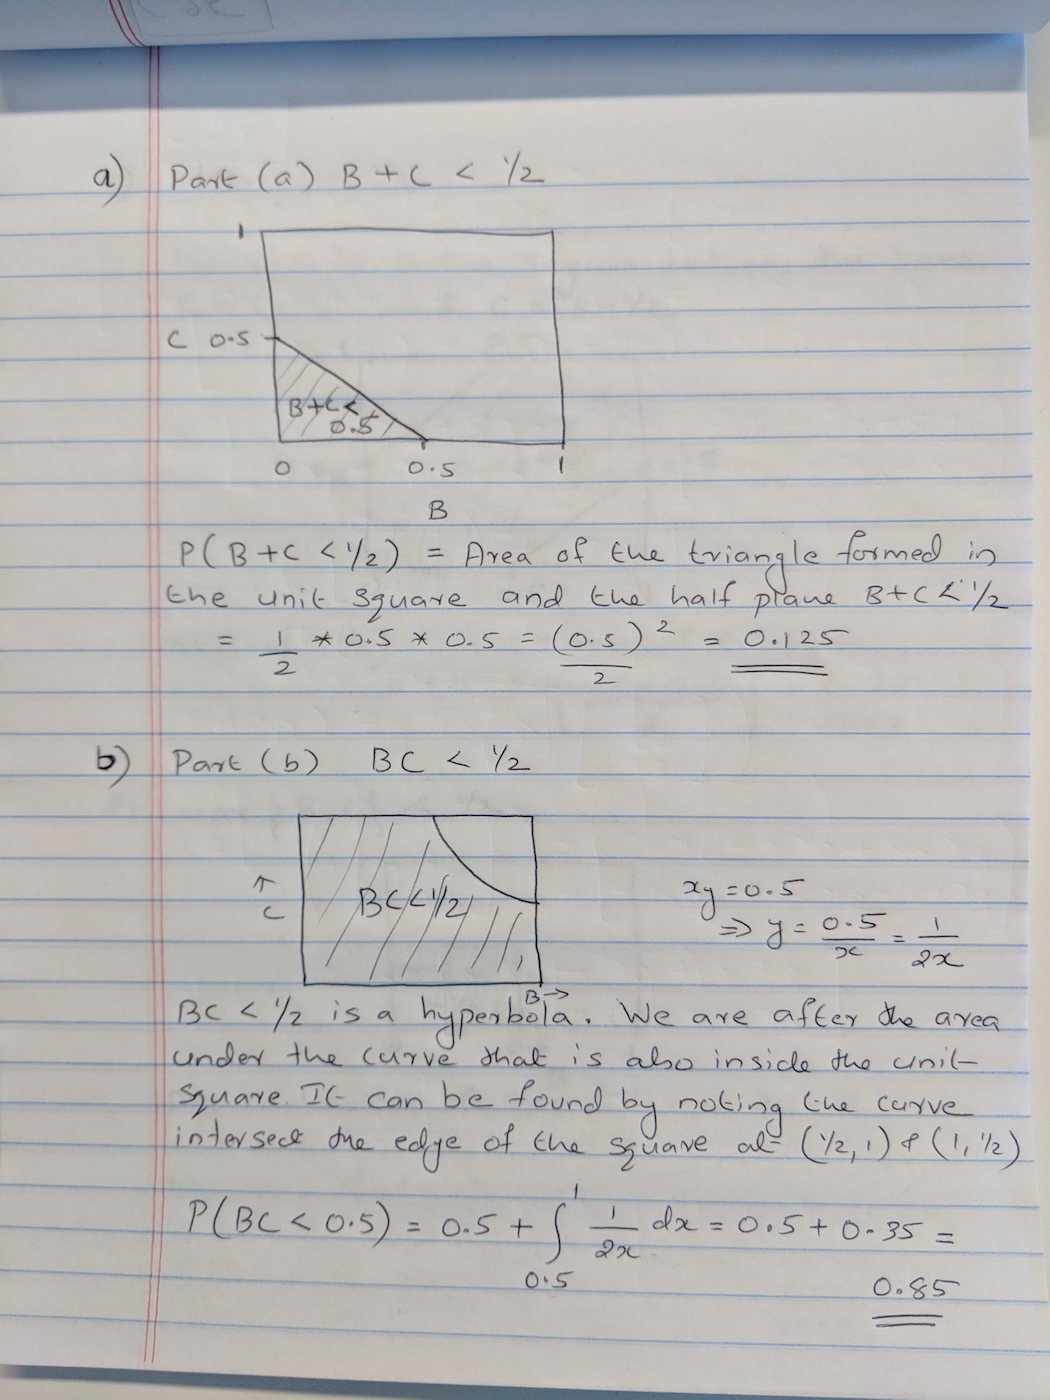 a) Part (a) B + C < 1/2
1
C 0.5
B+C <
0.5
0 0.5 1
B
P(B+C < 1/2) = Area of the triangle formed in
the unit square and the half plane B+C < 1/2
= 1/2 * 0.5 * 0.5 = (0.5)²/2 = 0.125
b) Part (b) BC < 1/2
↑
C
BC < 1/2
B→
xy = 0.5
⇒ y = 0.5/x = 1/2x
BC < 1/2 is a hyperbola. We are after the area
under the curve that is also inside the unit
square. It can be found by noting the curve
intersect the edge of the square at (1/2, 1) & (1, 1/2)
P(BC < 0.5) = 0.5 + ∫_{0.5}^{1} 1/2x dx = 0.5 + 0.35 =
0.85